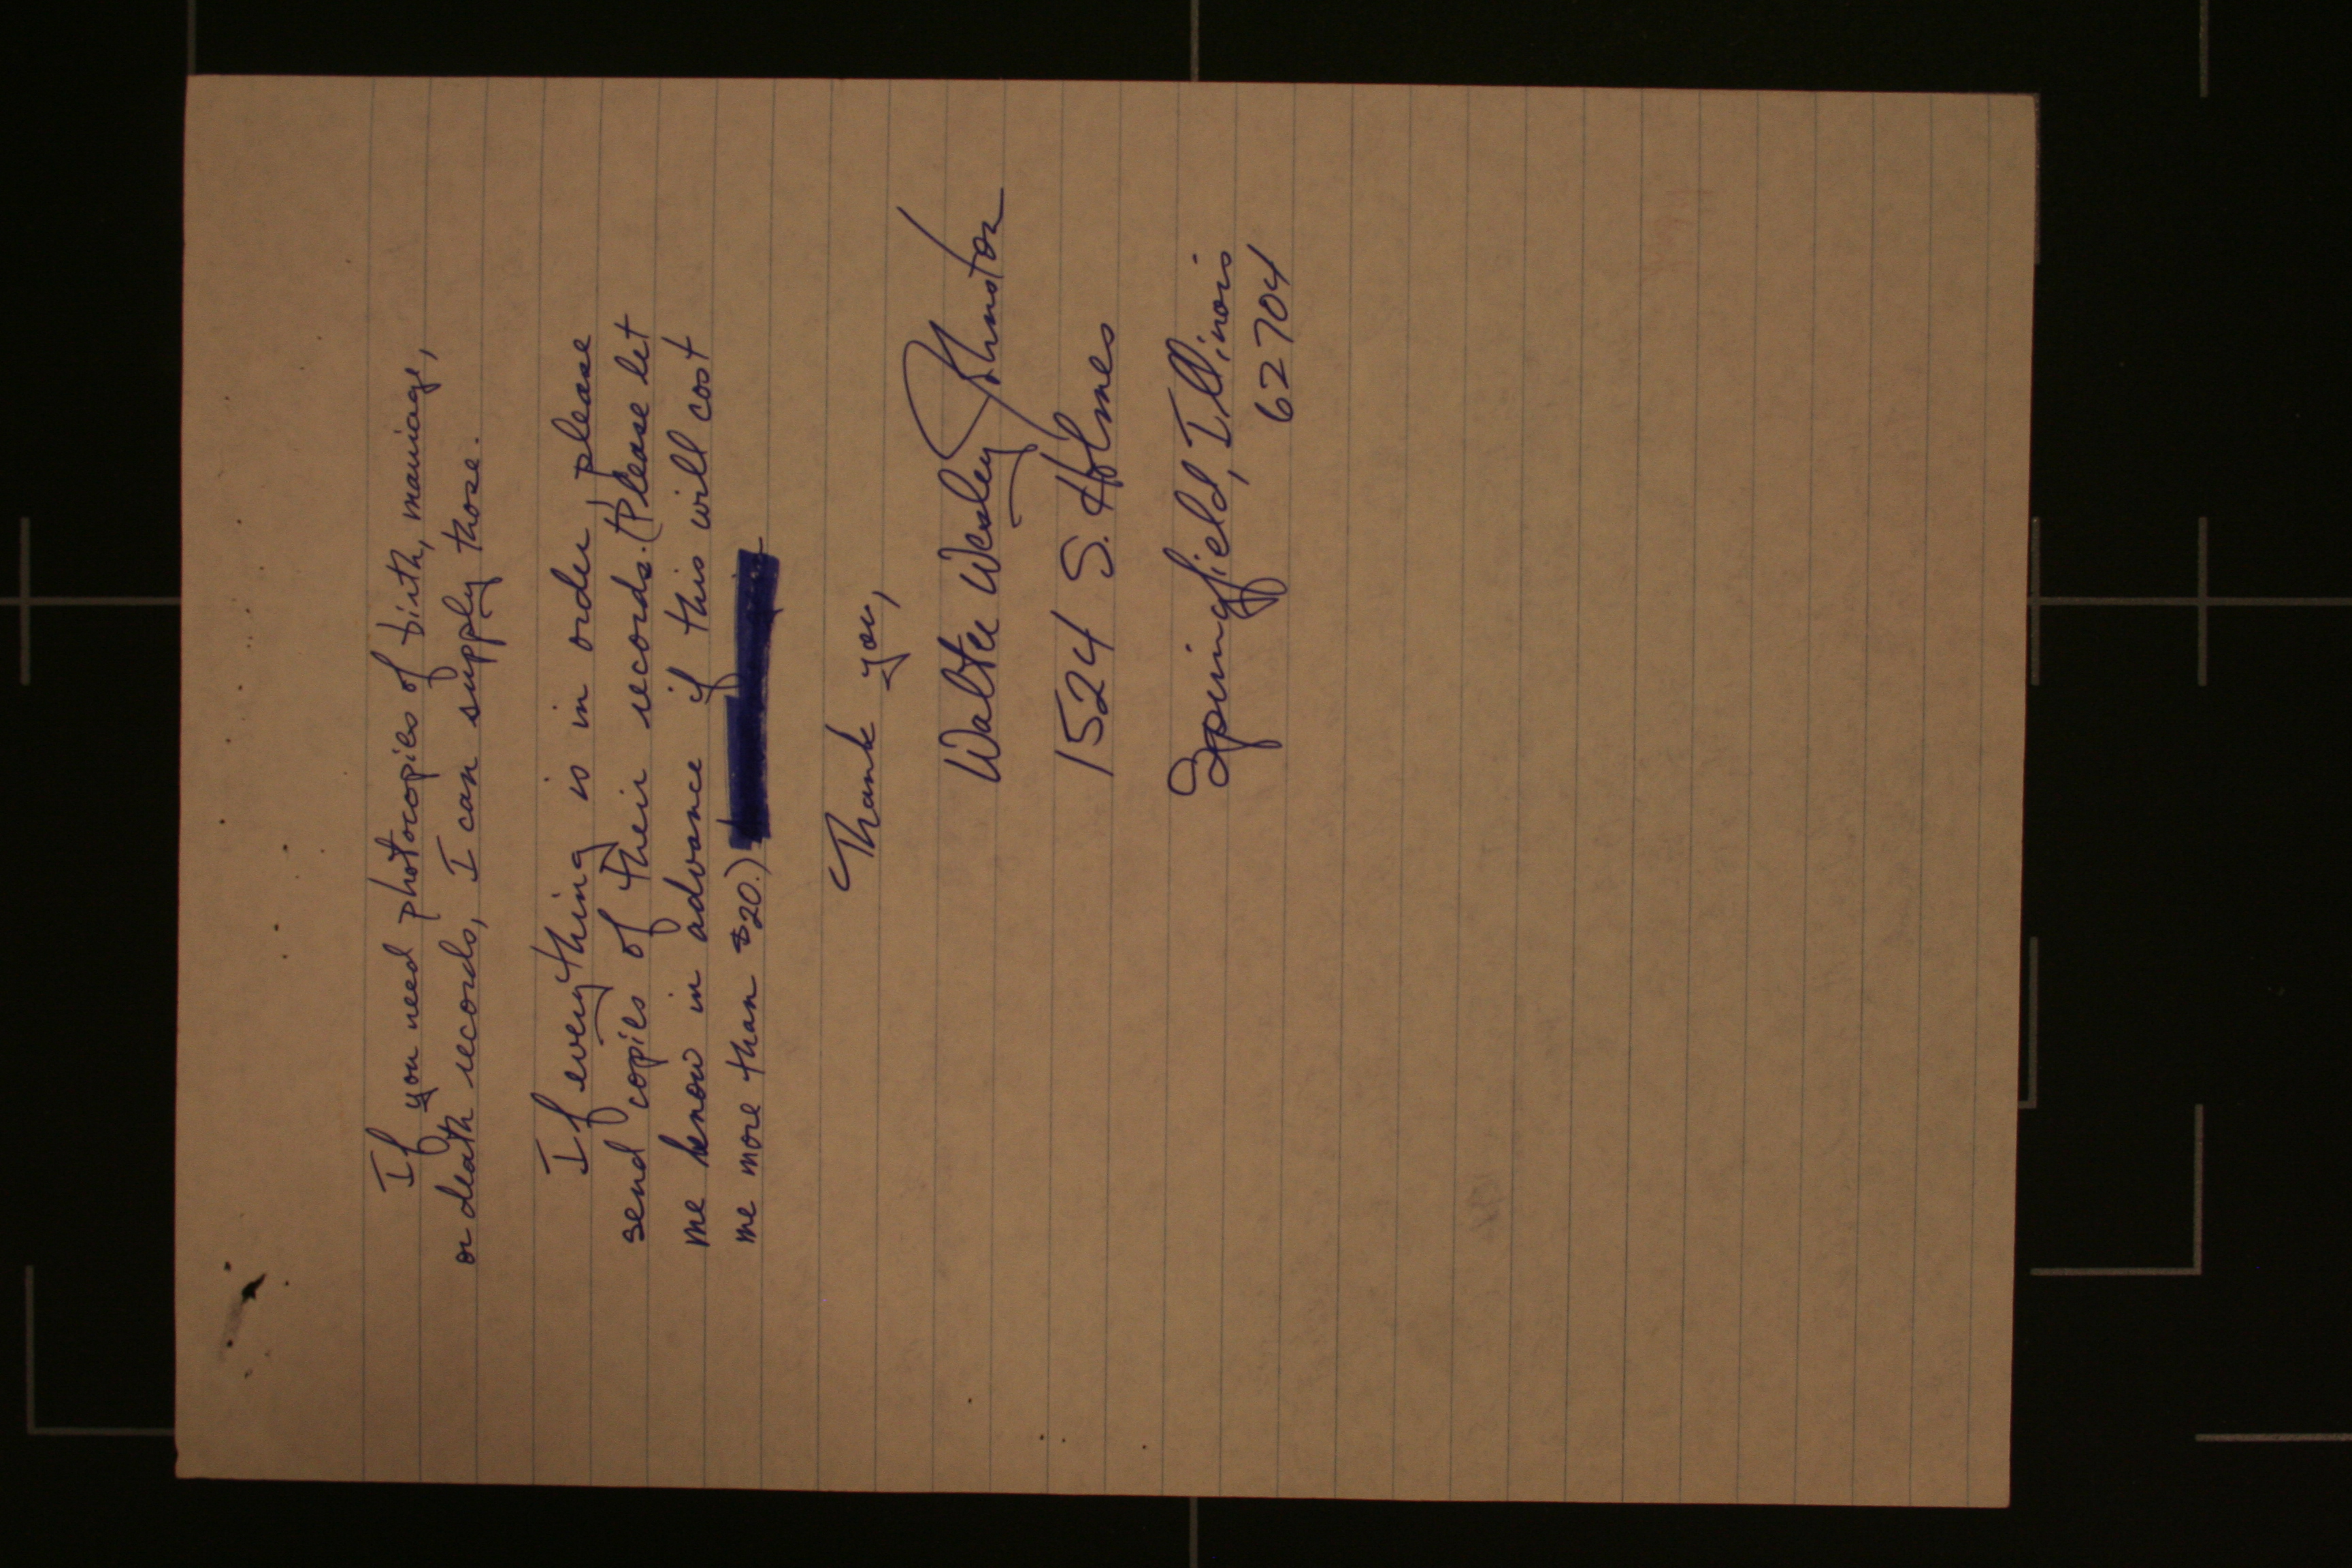 If you need photocopies of birth, marriage,
or death records, I can supply those.
If everything is in order please
send copies of their records. (Please let
me know in advance if this will cost
me more than $20.)
Thank you,
Walter Wesley Johnston
1524 S. Holmes
Springfield, Illinois
62704